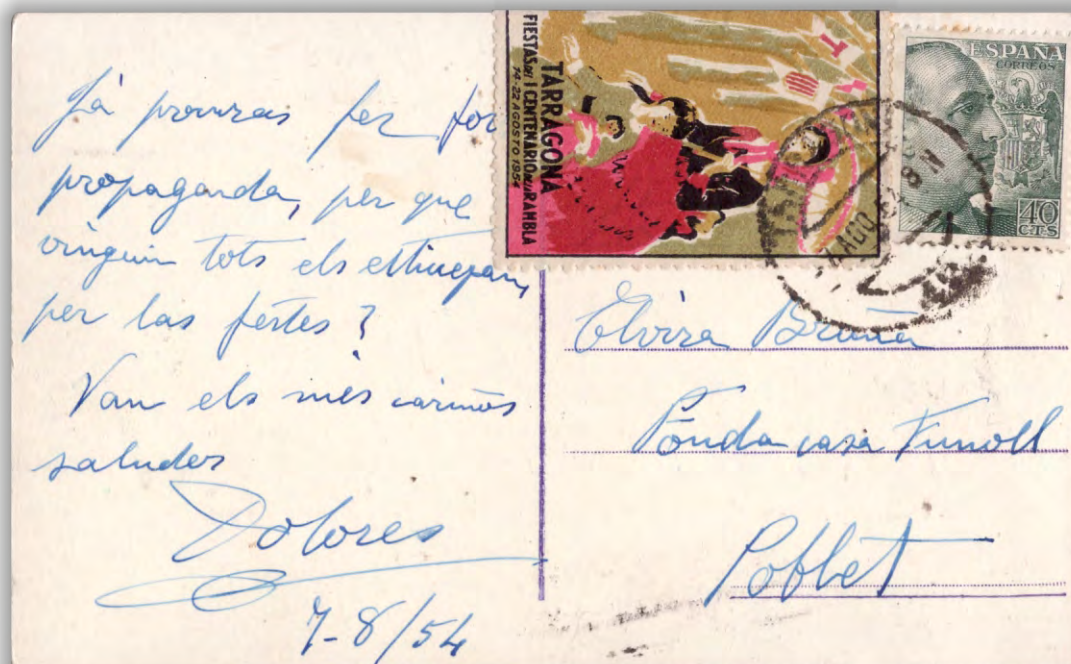 Ja procuras fer for
propaganda, per que
vinguin tots els estiuejans
per las festes?
Van els més cariños
saludos
Dolores
7-8/54
TARRAGONA
FIESTAS DEL I CENTENARIO DE LA RAMBLA
14-22 AGOSTO 1954
T
ESPAÑA
CORREOS
40
CTS
AGO
Elvira Bruña
Fonda casa Fumoll
Poblet